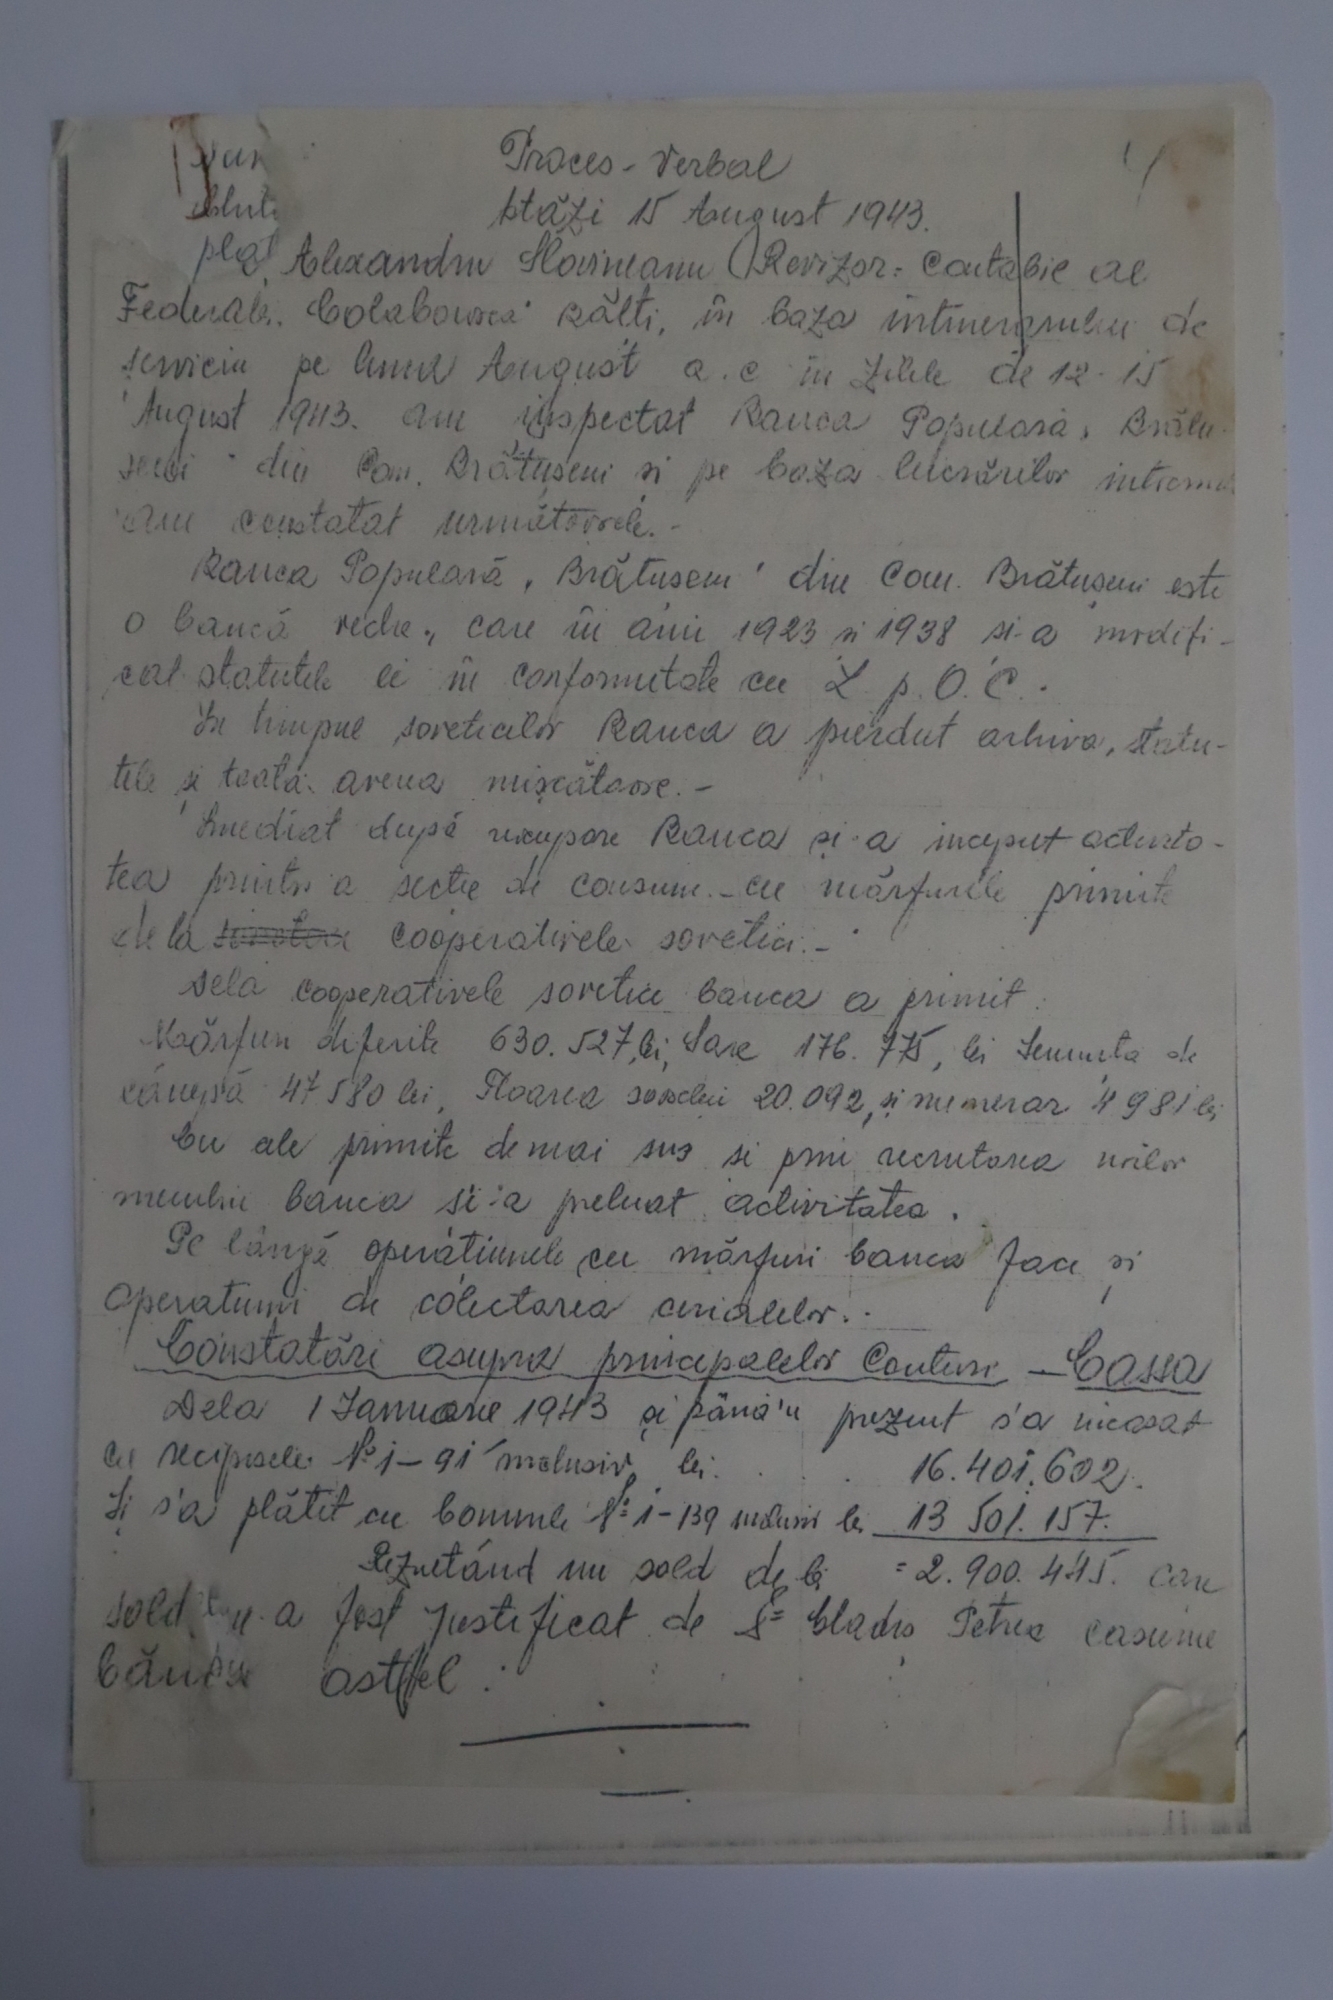 Proces-Verbal
Astăzi 15 August 1943.
Alexandru Slovineanu Revizor-Contabil al
Federalei "Colaborarea" Bălti, in baza intinerarului de
serviciu pe luna August a.c in zilele de 12-15
August 1943. am inspectat Banca Populară, Brătu-
seni" din Com. Brătuşeni si pe baza lucrărilor
am constatat următoarele.-
Banca Populară "Brătuseni" din Com. Brătuşeni este
o bancă veche, care în anii 1923 si 1938 si-a modifi-
cat statutele ei în conformitate cu L. p. O. C.
In timpul sovieticilor Banca a pierdut arhiva, statu-
tele și toată averea mişcătoare.-
Imediat după Banca şi-a inceput activita-
tea printr'o sectie de consum.-cu mărfurile primite
dela cooperativele sovietici.-
Dela cooperativele sovetice banca a primit:
Mărfuri diferite 630.527, lei, Sare 176.775, lei Semınta de
cânepă 47580 lei, Floarea soarelui 20.092, și numerar 4981 lei
Cu ale primite demai sus si prin recrutarea
membri banca si-a preluat activitatea.
Pe lângă operatiunele cu mărfuri banca face și
operatiuni de colectarea cerialelor.
Constatări asupra principalelor Conturi - Cassa
Dela 1 Ianuarie 1943 și până'n prezent s'a incasat
cu recipisele No 1-91 inclusiv lei. . . . 16.401.602.
Şi s'a plătit cu bonurile No 1-139 inclusiv lei 13 501.157.
Rezultând un sold de lei =2.900.445. care
sold a fost justificat de Petrea
astfel: